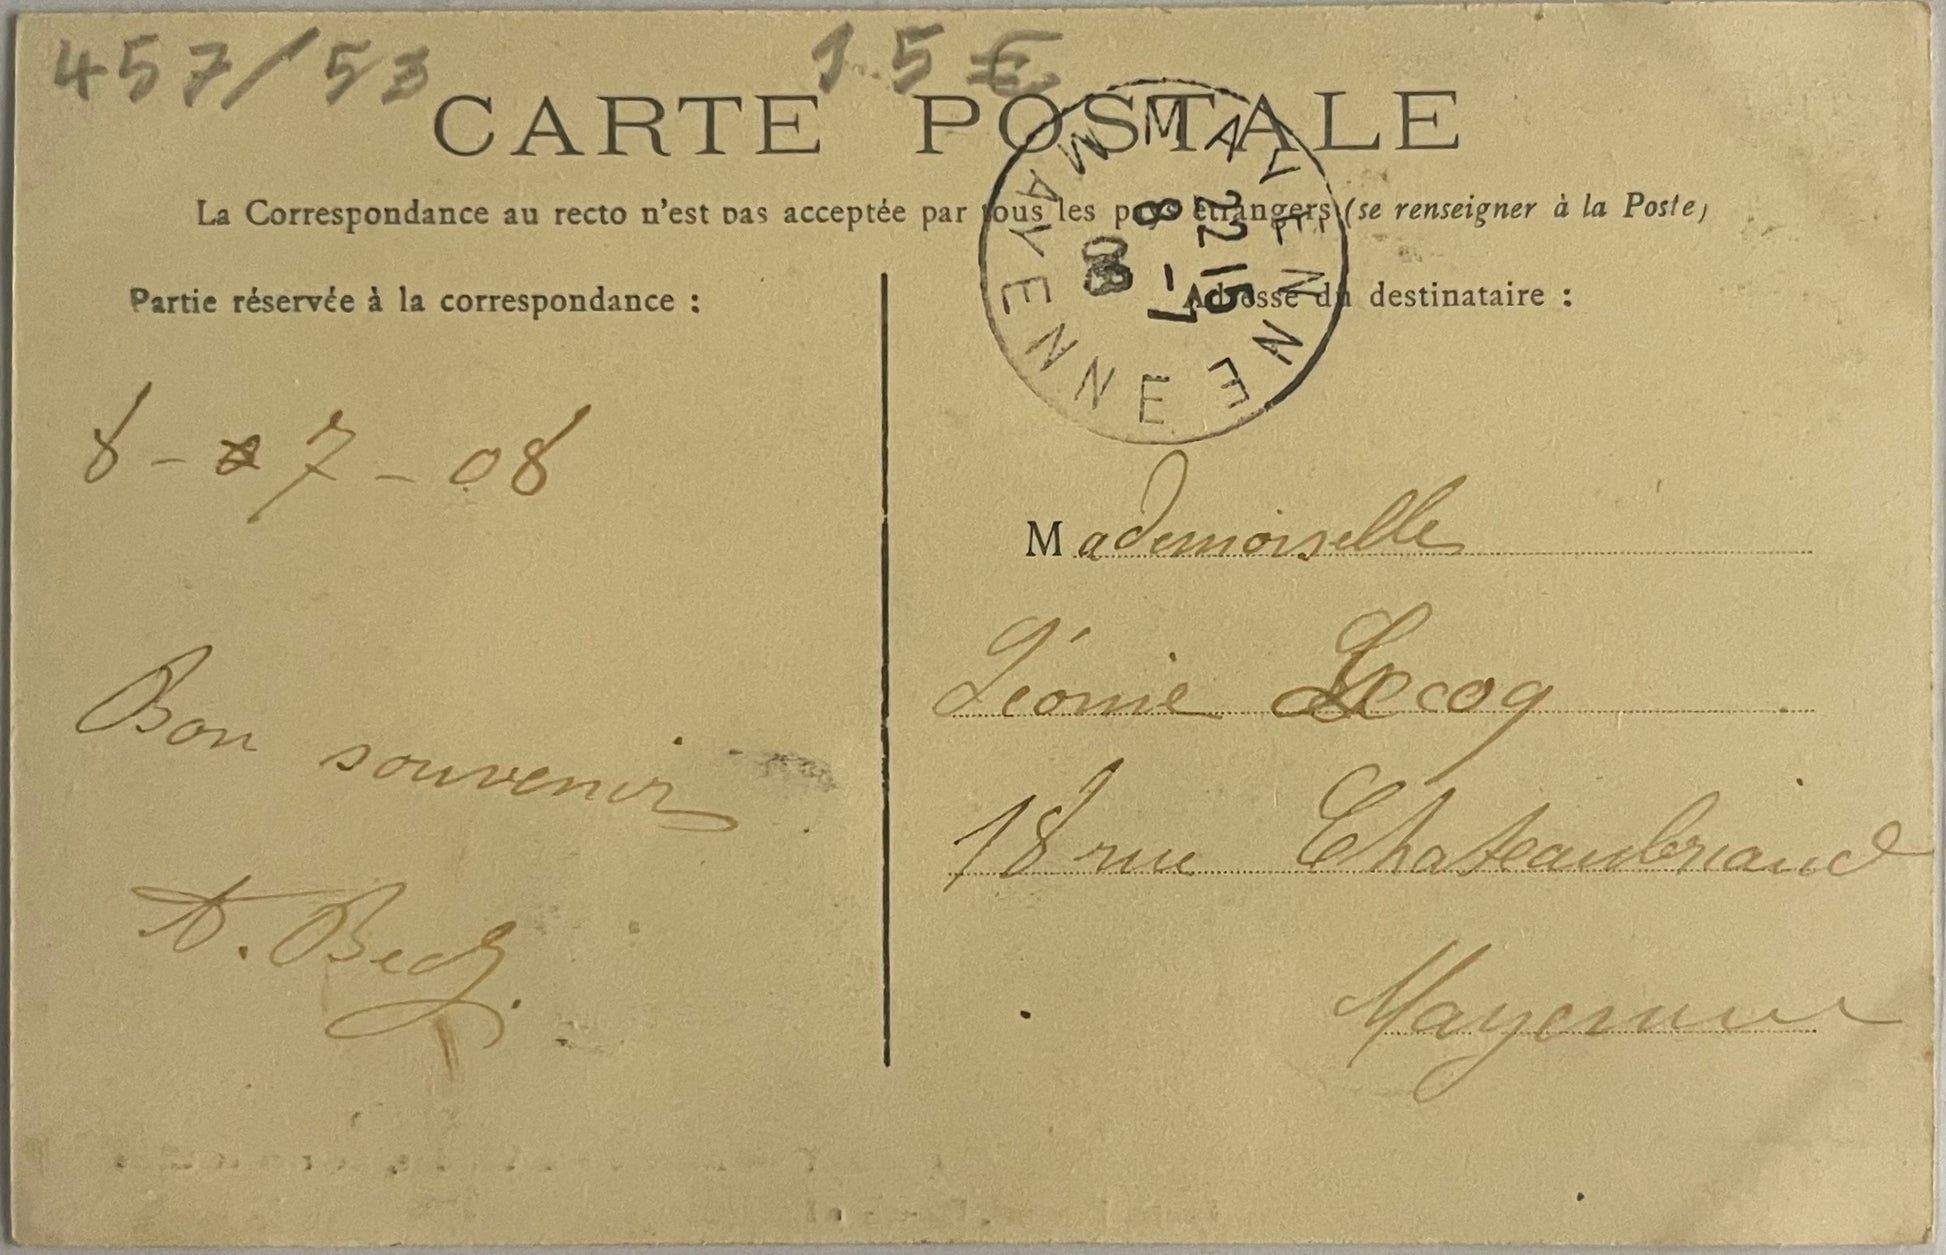 457/53
15€
CARTE POSTALE
La Correspondance au recto n'est pas acceptée par tous les pays étrangers (se renseigner à la Poste)
Partie réservée à la correspondance :
8 - 7 - 08
Bon souvenir
A. Beck.
MAYENNE MAYENNE
22 15
8 - 7
08
Adresse du destinataire :
Mademoiselle
Léonie Lecoq
18 rue Chateaubriand
Mayenne